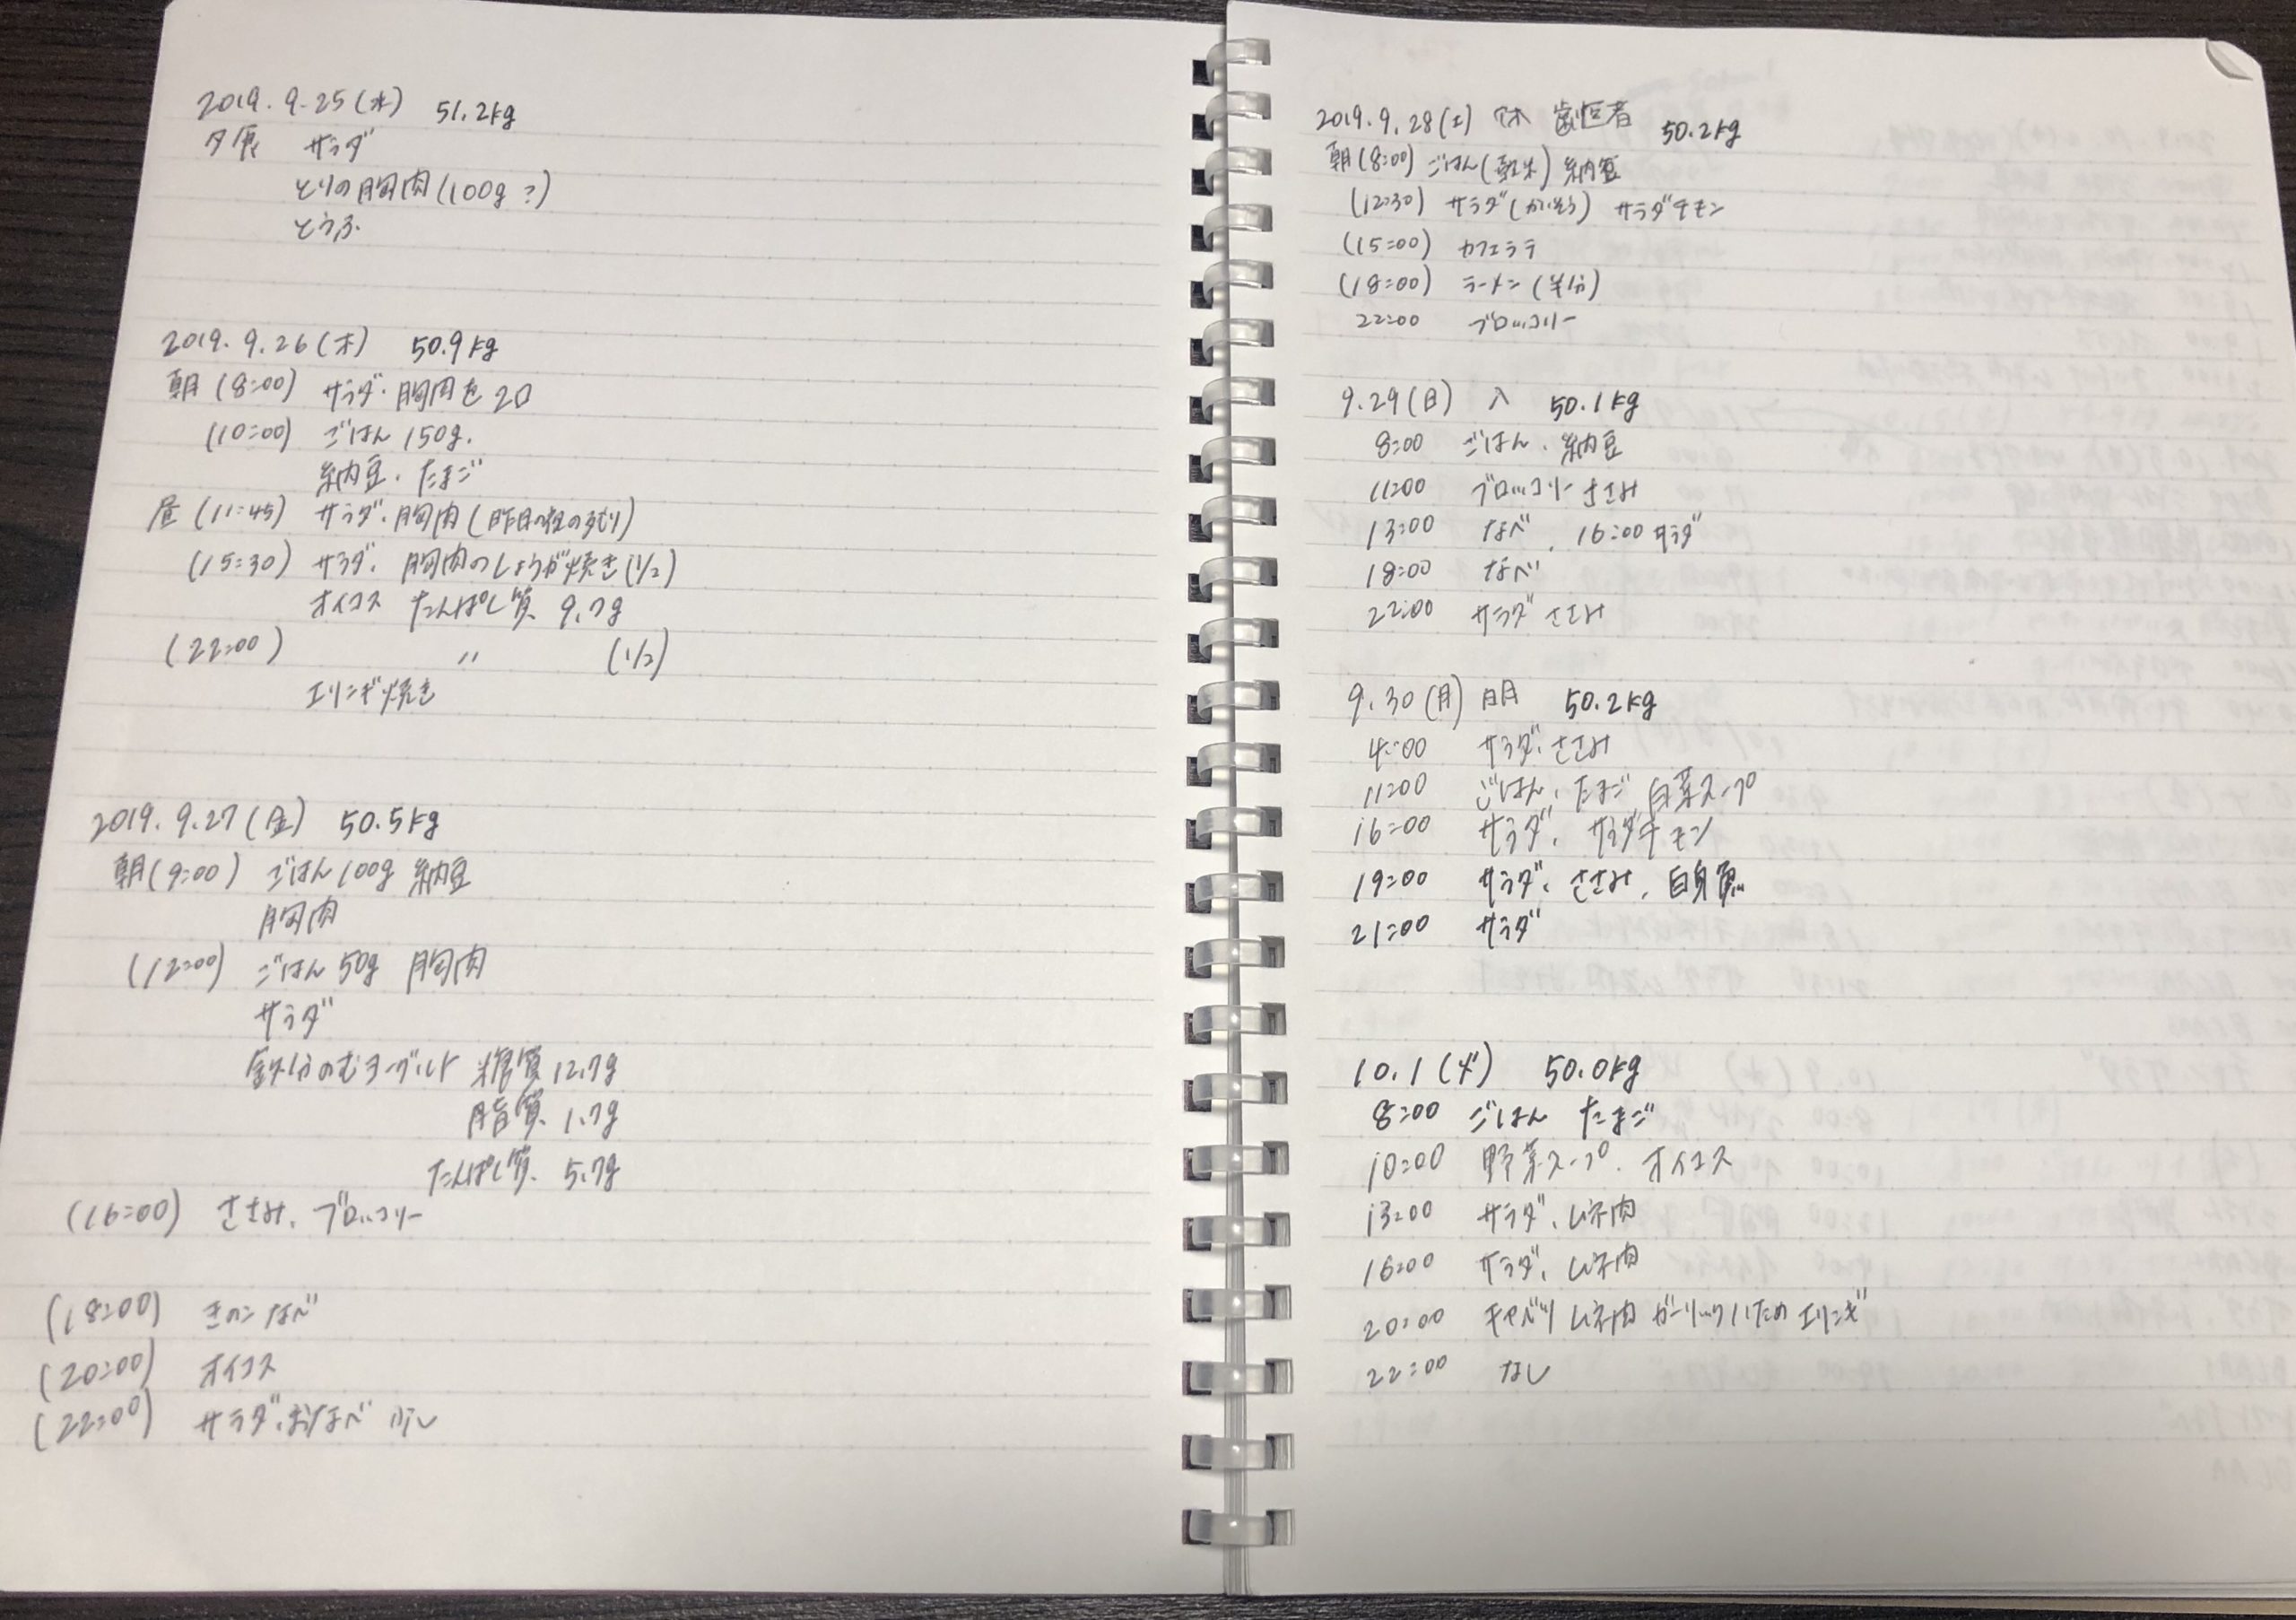 2019. 9. 25 (水) 51.2kg
夕 サラダ
とりの胸肉 (100g ?)
とうふ
2019. 9. 26 (木) 50.9kg
朝 (8:00) サラダ・胸肉を
(10:00) ごはん 150g.
納豆. たまご
昼 (11:45) サラダ. 胸肉 (昨日の夜の残り)
(15:30) サラダ. 胸肉のしょうが焼き (1/2)
オイコス たんぱく質 9.7g
(22:00) 〃 (1/2)
エリンギ焼き
2019. 9. 27 (金) 50.5kg
朝 (9:00) ごはん 100g 納豆
胸肉
(12:00) ごはん 50g 胸肉
サラダ
鉄分のむヨーグルト 糖質 12.7g
脂質 1.7g
たんぱく質 5.7g
(16:00) ささみ. ブロッコリー
(18:00) きのこなべ
(20:00) オイコス
(22:00) サラダ. おなべ
2019. 9. 28 (土) 休 歯医者 50.2kg
朝 (8:00) ごはん () 納豆
(12:30) サラダ (かいそう) サラダチキン
(15:00) カフェラテ
(18:00) ラーメン (半分)
22:00 ブロッコリー
9. 29 (日) 入 50.1kg
8:00 ごはん. 納豆
11:00 ブロッコリー ささみ
13:00 なべ. 16:00 サラダ
18:00 なべ
22:00 サラダ ささみ
9. 30 (月) 明 50.2kg
4:00 サラダ. ささみ
11:00 ごはん. たまご 白菜スープ
16:00 サラダ. サラダチキン
19:00 サラダ. ささみ. 白身魚
21:00 サラダ
10. 1 (火) 50.0kg
8:00 ごはん たまご
10:00 野菜スープ. オイコス
13:00 サラダ. ムネ肉
16:00 サラダ. ムネ肉
20:00 キャベツ ムネ肉 ガーリックいため エリンギ
22:00 なし